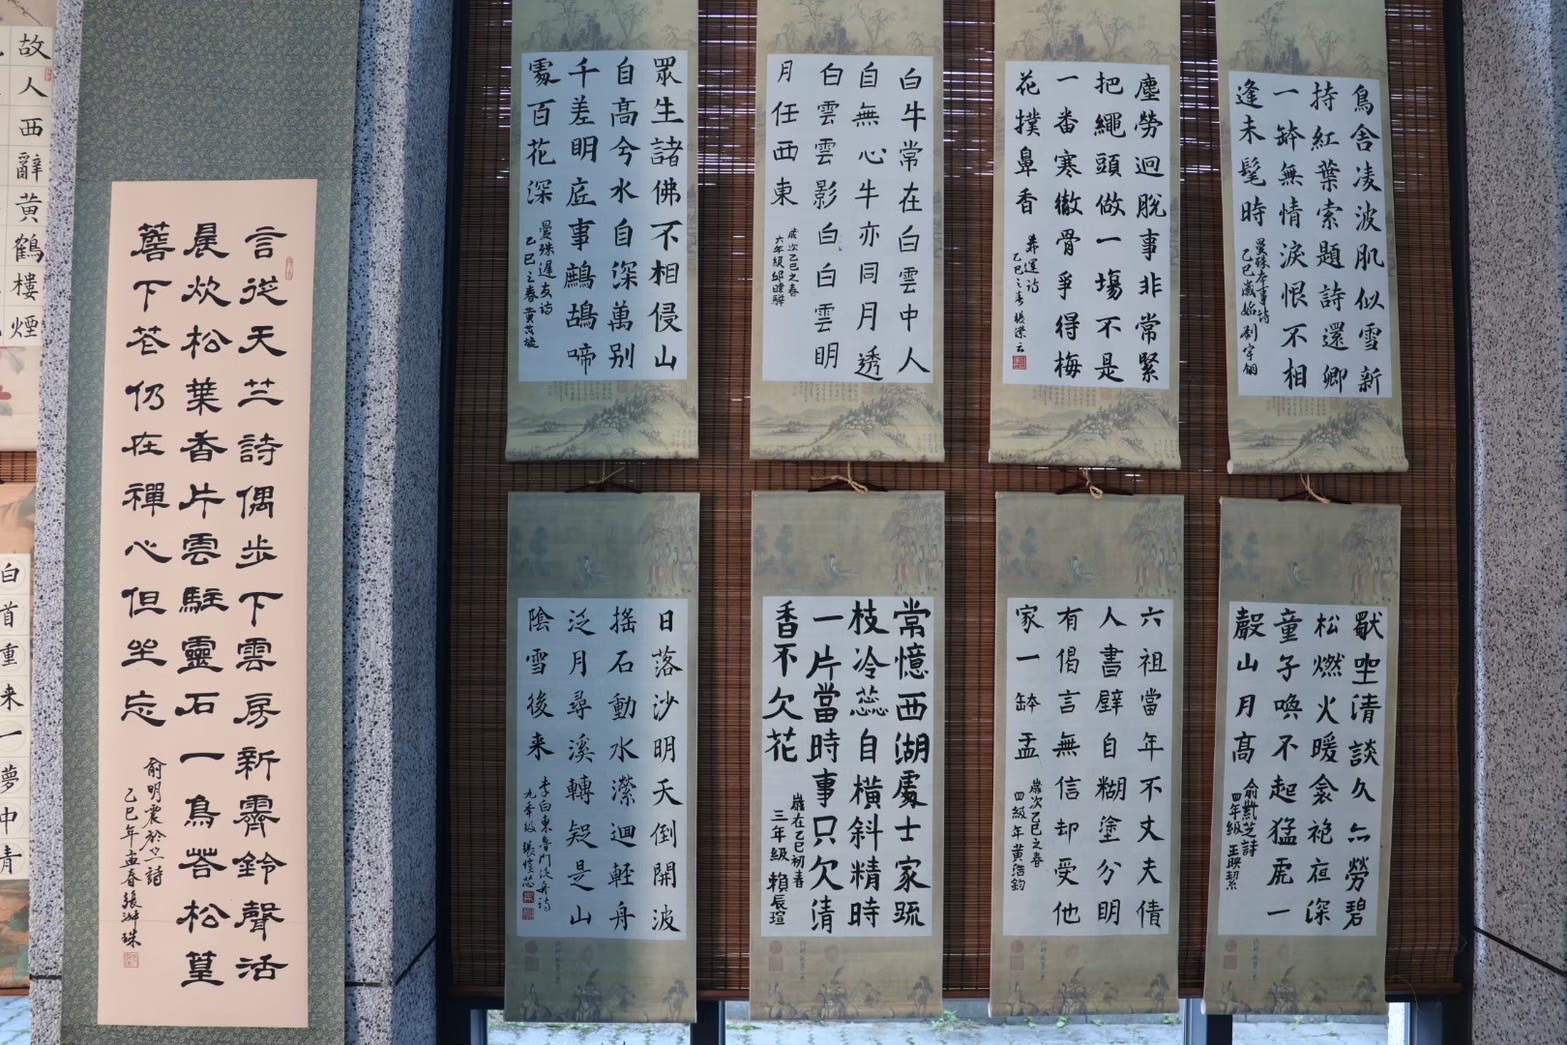 鳥舍凌波肌似雪新
持紅葉索題詩還卿
一缽無情淚恨不相
逢未髡時
塵勞迴脫事非常緊
把繩頭做一場不是
一番寒徹骨爭得梅
花撲鼻香
白牛常在白雲中人
自無心牛亦同月透
白雲雲影白白雲明
月任西東
歲次乙巳之春
眾生諸佛不相侵山
自高兮水自深萬別
千差明底事鷓鴣啼
處百花深
乙巳之春
猒坐清談久亦勞碧
松燃火暖衾袍夜深
童子喚不起猛虎一
聲山月高
俞紫芝詩
六祖當年不丈夫倩
人書壁自糊塗分明
有偈言無信却受他
家一缽盂
歲次乙巳之春
常憶西湖處士家疏
枝冷蕊自橫斜精時
一片當時事只欠清
香不欠花
歲在乙巳初春
三年級賴辰瑄
日落沙明天倒開波
搖石動水瀠迴輕舟
泛月尋溪轉疑是山
陰雪後来
李白東魯門泛舟詩
言從天竺詩偶步下雲房新霽鈴聲活
晨炊松葉香片雲馱靈石一鳥啄松篁
薝下花仍在禪心但坐忘
俞明震於竺詩
乙巳年孟春張淑珠
故人西辭黃鶴樓煙
白首重来一夢中青